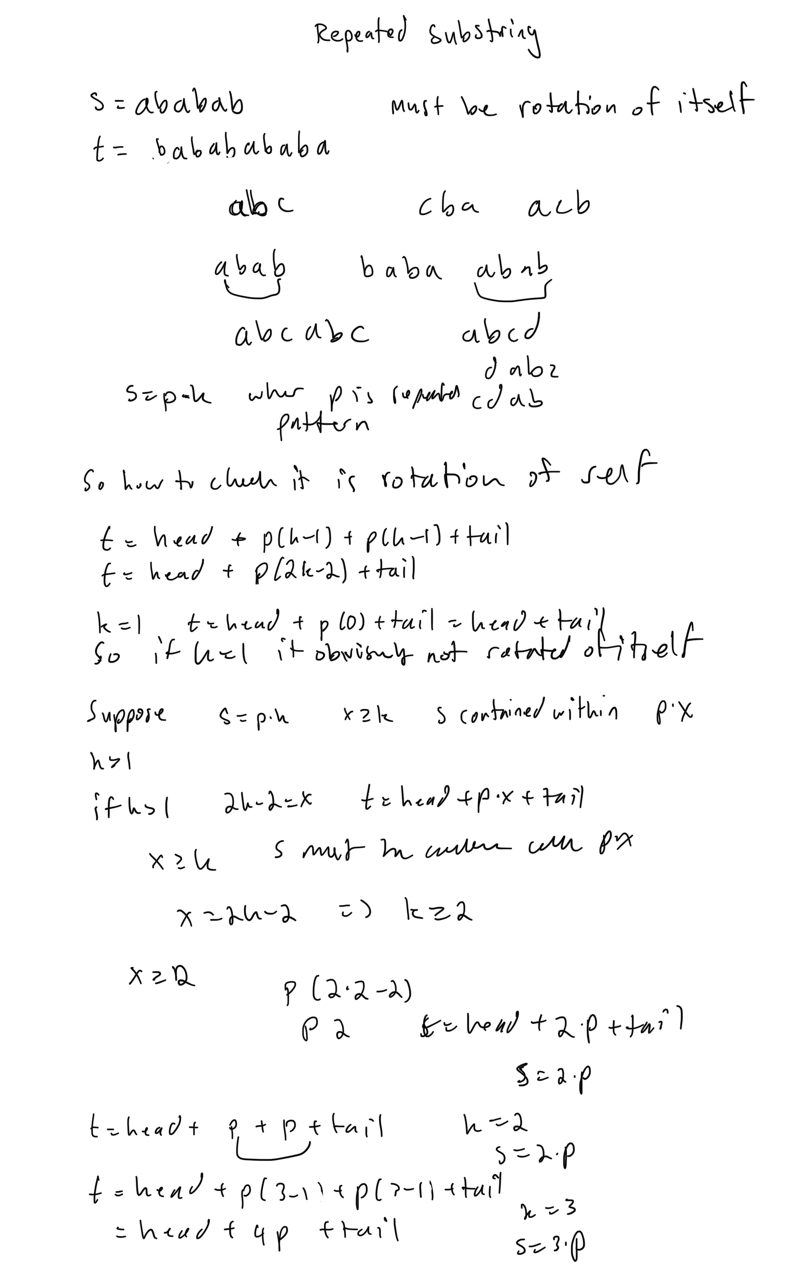 Repeated Substring
s = ababab must be rotation of itself
t = bababababa
abc cba acb
abab baba abab
abcabc abcd
dabz
s=p-k wher p is repeated cdab
pattern
So how to check it is rotation of self
t = head + p(k-1) + p(k-1) + tail
t = head + p(2k-2) + tail
k=1 t=head + p(0) + tail = head + tail
So if k=1 it obviously not rotated of itself
Suppose s=p·k x≥k s contained within p·x
k>1
if k>1 2k-2=x t=head+p·x+tail
x≥k s must be p·x
x=2k-2 => k≥2
x≥2
p(2·2-2)
p 2 t=head + 2·p + tail
s=2·p
t=head + p + p + tail k=2
s=2·p
t = head + p(3-1) + p(3-1) + tail
k=3
= head + 4p + tail
s=3·p